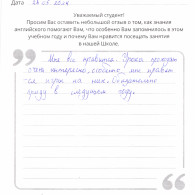 Дата 28.05.2024
Уважаемый студент!
Просим Вас оставить небольшой отзыв о том, как знания
английского помогают Вам, что особенно Вам запомнилось в этом
учебном году и почему Вам нравится посещать занятия
в нашей Школе.
Мне всё нравится. Уроки проходят
очень интересно, особенно мне нравят
ся игры на них. Обязательно
приду в следующем году.